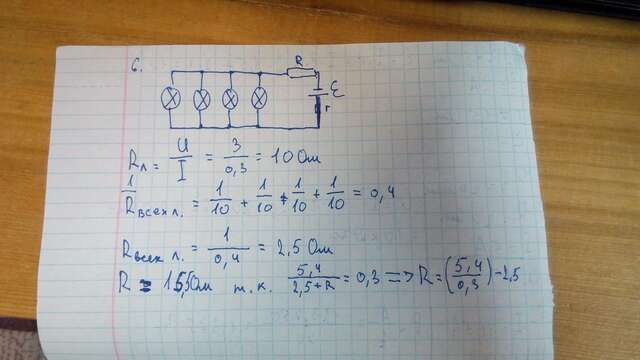 6.
R
ℰ
r
Rл = U/I = 3/0,3 = 10 Ом
1/Rвсех л. = 1/10 + 1/10 + 1/10 + 1/10 = 0,4
Rвсех л. = 1/0,4 = 2,5 Ом
R = 15,5 Ом т.к. 5,4/(2,5+R) = 0,3 => R = (5,4/0,3) - 2,5